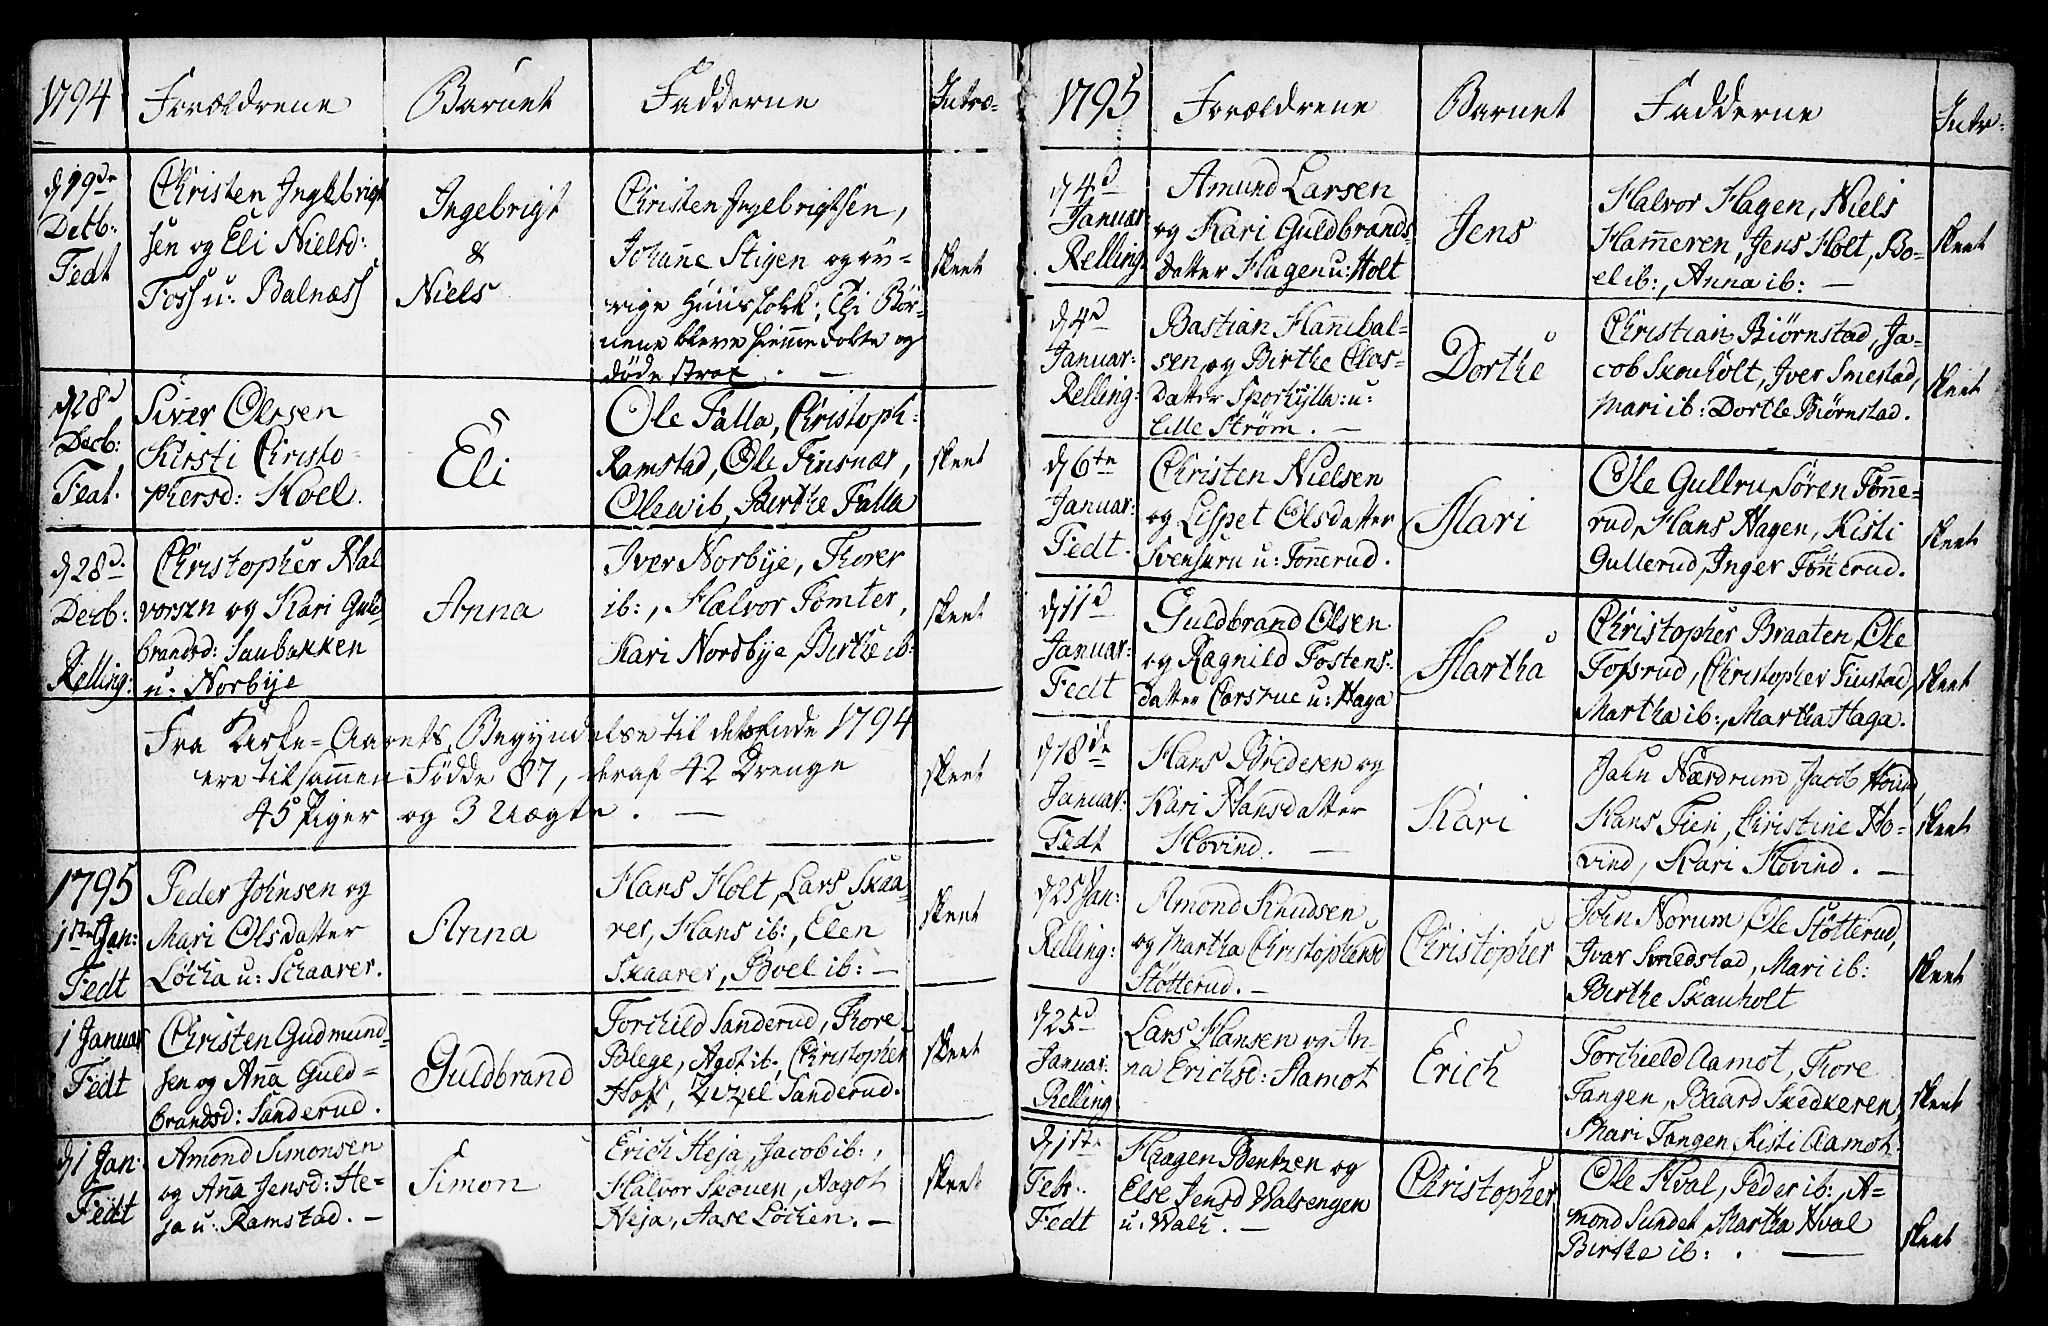 1794
Forældrene
Barnet
Fadderne
Intro=
d 19de
Decb:
Fedt
Christen Ingebrigt
sen og Eli Nielsd:
Foss u: Balnæss
Ingebrigt
&
Niels
Christen Ingebrigtsen,
Johane Stigen og øv-
rige Huusfolk; Eli Bør-
nene bleve hiemmedøbte og
døde strax. —
skeet
d 28d
Decb:
Feat.
Siver Olesen
Kirsti Christo-
phersd: Hoel.
Eli
Ole Falla, Christoph:
Ramstad, Ole Finsnær,
Olea ib, Birthe Falla
skeet
d 28d.
Decb:
Relling:
Christopher Hal
vorsen og Kari Gule-
brandsd: Saubakken
u: Norbÿe
Anna
Iver Norbÿe, Thorer
ib:, Halvor Tømter,
Kari Nordbÿe, Birthe ib:
skeet
Fra Kirke=Aarets Begyndelse til dets Ende 1794
ere tilsammen Fødde 87, deraf 42 Drenge
45 Piger og 3 Uægte. —
skeet
1795
1ste Jan:
Fedt
Peder Johnsen og
Mari Olsdatter
Løcha u: Schaarer.
Anna
Hans Holt, Lars Skaa-
rer, Hans ib:, Elen
Skaarer, Boel ib: —
skeet
1 Januar
Fedt
Christen Gudmund-
sen og Anna Guld=
brandsd: Sanderud.
Guldbrand
Torchild Sanderud, Thore
Blege, Agot ib:, Christopher
Hoff, Zizel Sanderud.
skeet
d 1 Jan:
Fedt
Amond Simonsen
og Anna Jensd: He-
ja u: Ramstad. —
Simon
Erich Heja, Jacob ib:,
Halvor Skouen, Aagot
Heja, Aase Løchen. —
skeet
1795
Forældrene
Barnet
Fadderne
Intr:
d 4d
Januar:
Relling:
Amund Larsen
og Kari Guldbrands-
datter Hagen u: Holt
Jens
Halvor Hagen, Niels
Hammeren, Jens Holt, Bo-
el ib:, Anna ib: —
skeet
d 4d
Januar:
Relling:
Bastian Hannibal-
sen og Birthe Olas-
datter Sporkylla u:
Lille Strøm. —
Dorthe
Christian Biørnstad, Ja-
cob Skouholt, Iver Smestad,
Mari ib: Dorthe Biørnstad.
skeet
d 6te
Januar:
Fedt.
Christen Nielsen
og Lispet Olsdatter
Svensurn u: Tønnerud.
Mari
Ole Gullru, Søren Tønne-
rud, Hans Hagen, Kisti
Gullerud, Inger Tønnerud.
skeet
d 11d
Januar:
Fedt
Guldbrand Olsen
og Ragnild Tostens-
datter Corsrue u: Haga
Martha
Christopher Braaten, Ole
Topsrud, Christopher Finstad,
Martha ib:, Martha Haga.
skeet
d 18de
Januar:
Fedt
Hans Bredesen og
Kari Hansdatter
Hovind. —
Kari
John Nærdrum, Jacob Hovind,
Hans Fieri, Christine Ho-
vind, Kari Hovind. —
skeet
d 25 Jan:
Relling:
Amond Knudsen
og Martha Christophersd
Støtterud. —
Christopher
John Norum, Ole Støtterud,
Ivar Smedstad, Mari ib:
Birthe Skauholt
skeet
d 25d
Januar:
Relling
Lars Hansen og An-
na Erichsd: Aamot
Erich
Torchield Aamot, Thore
Tangen, Baard Skedkeren,
Mari Tangen, Kisti Aamot.
skeet
d 1ste
Febr.
Fedt
Haagen Bentzen og
Else Jensd Valsengen
u: Walk. —
Christopher
Ole Hval, Peder ib:, A-
mond Sundet, Martha Hval
Birthe ib:. —
skeet